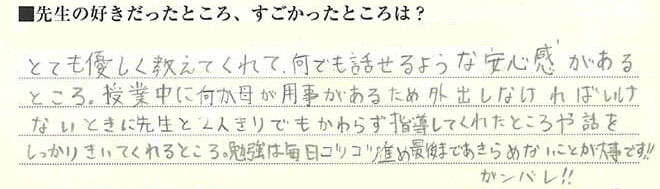 ■先生の好きだったところ、すごかったところは?
とても優しく教えてくれて、何でも話せるような安心感がある
ところ。授業中に何か母が用事があるため外出しなければいけ
ないときに先生と2人きりでもかわらず指導してくれたところや話を
しっかりきいてくれるところ。勉強は毎日コツコツ進め最後まであきらめないことが大事です!!
ガンバレ!!